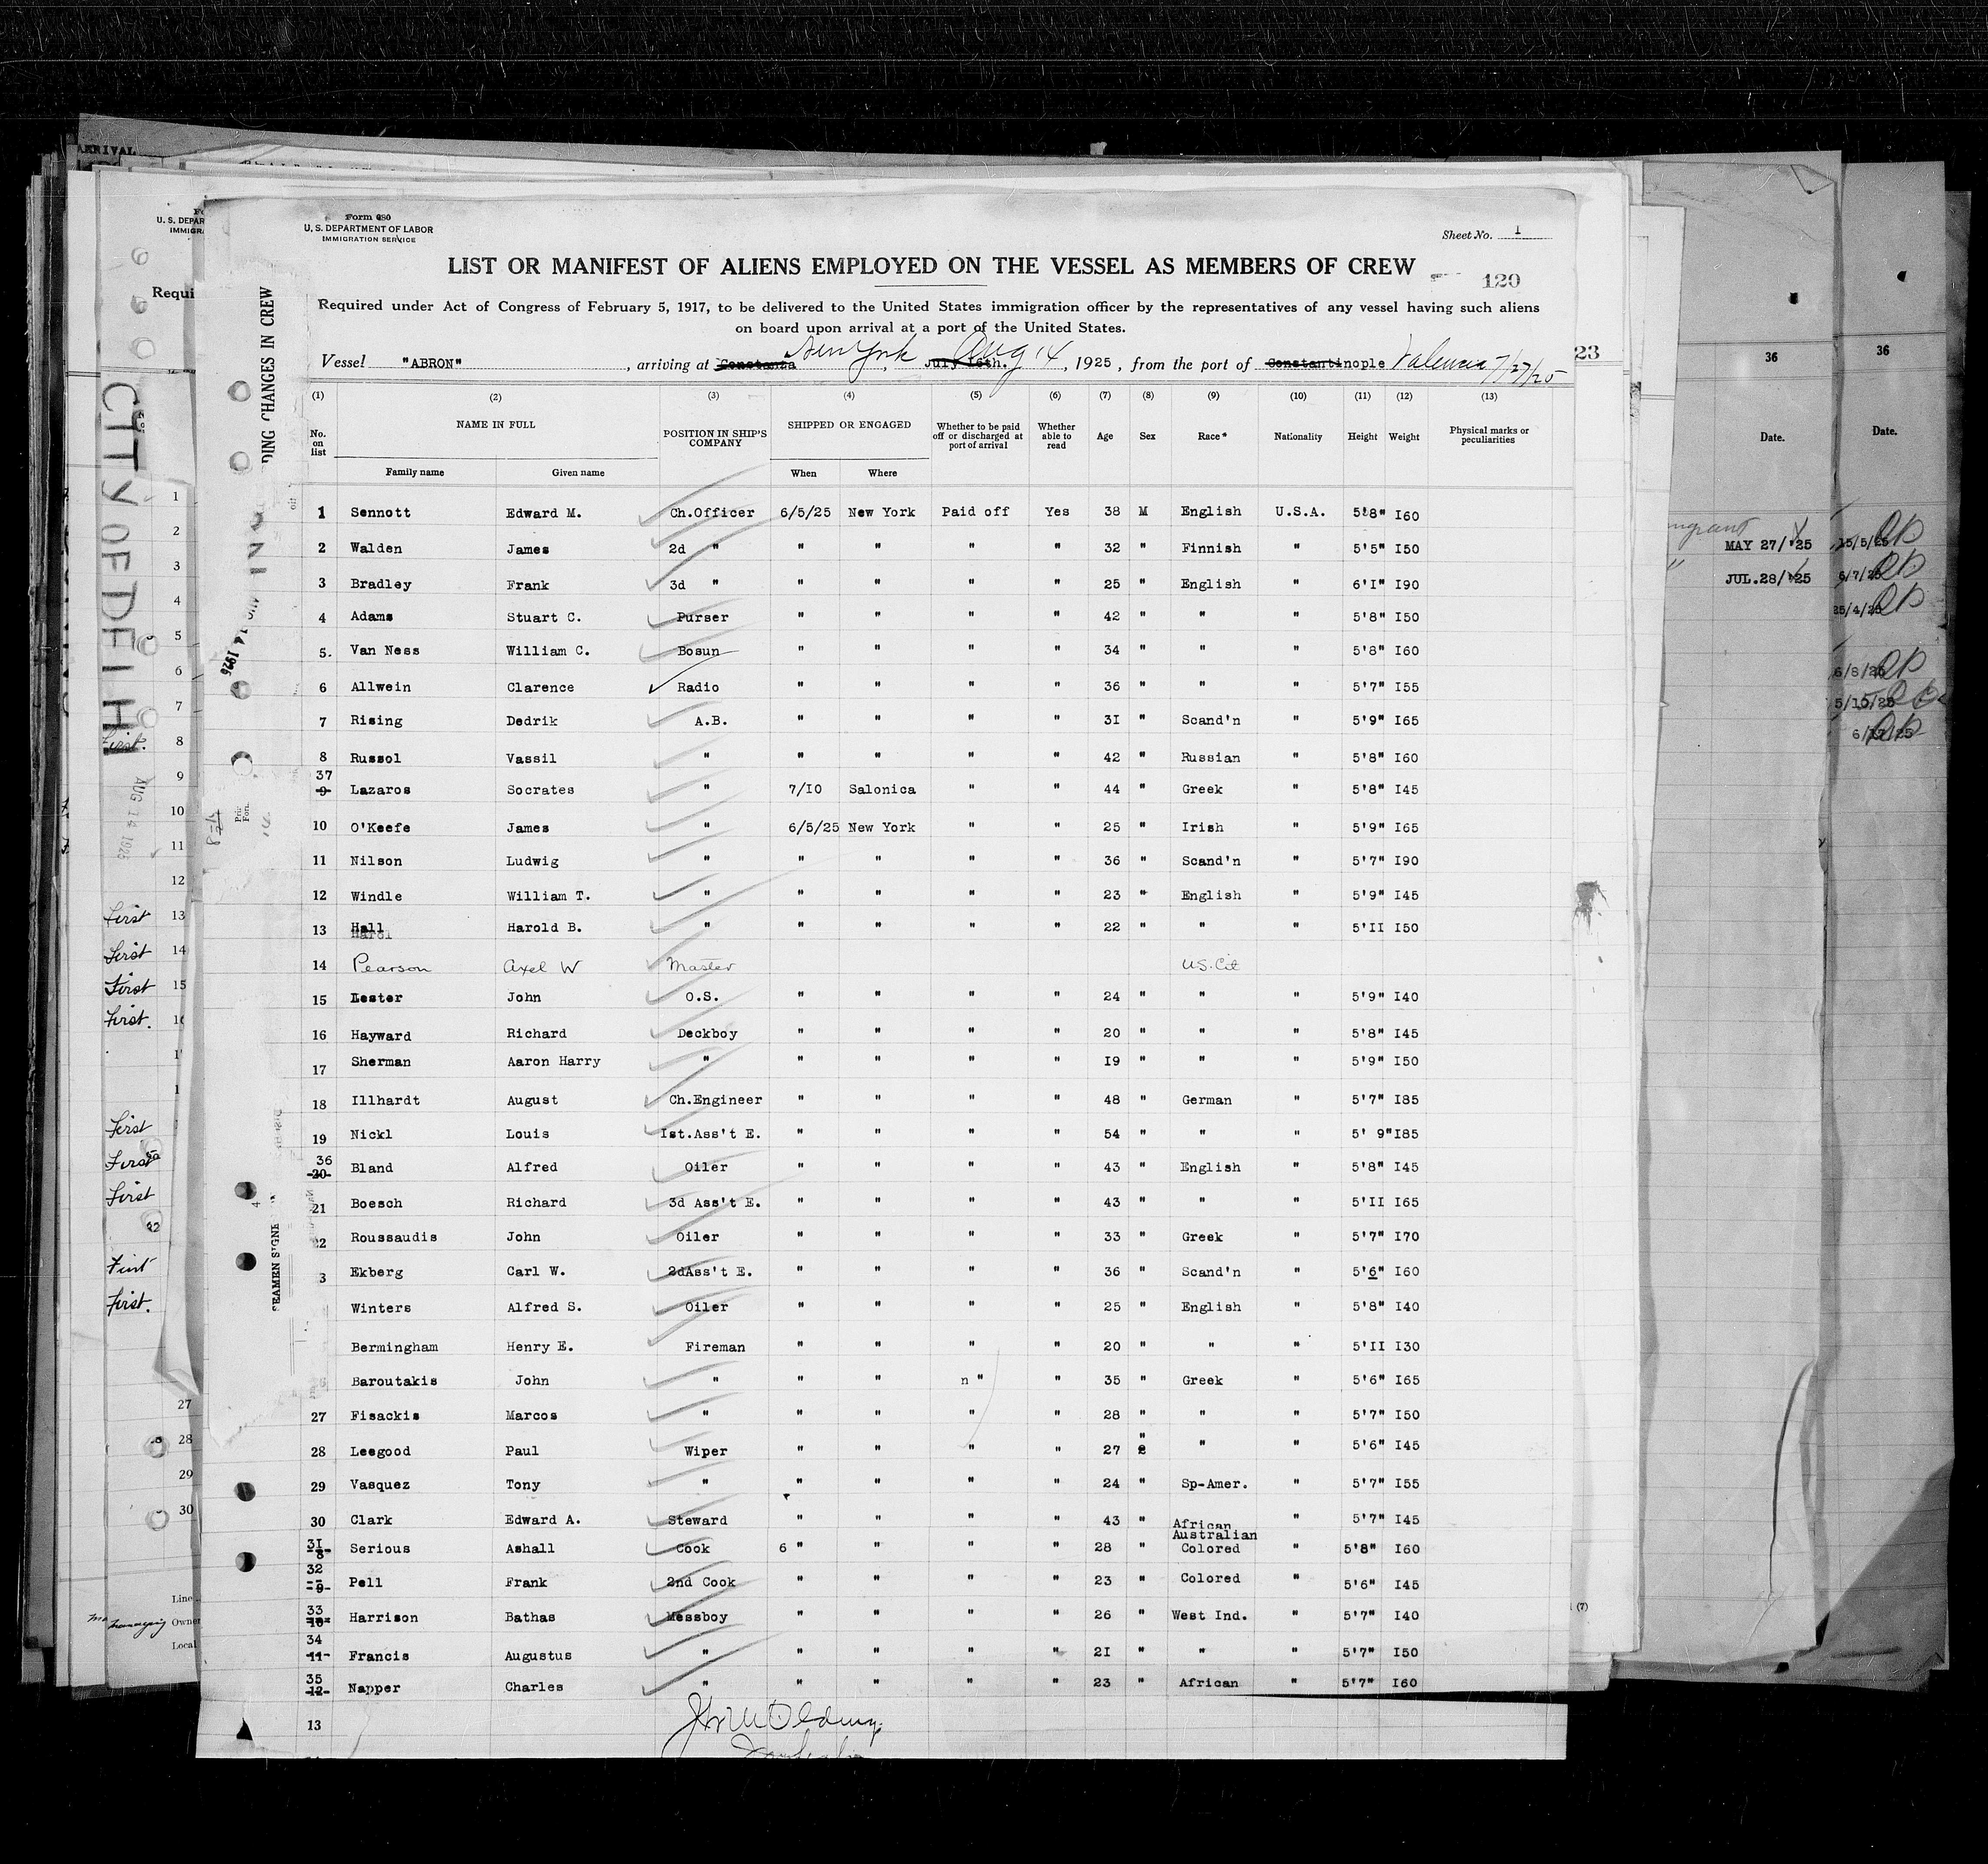 Form 680
U. S. DEPARTMENT OF LABOR
IMMIGRATION SERVICE
Sheet No. 1
LIST OR MANIFEST OF ALIENS EMPLOYED ON THE VESSEL AS MEMBERS OF CREW
120
Required under Act of Congress of February 5, 1917, to be delivered to the United States immigration officer by the representatives of any vessel having such aliens
on board upon arrival at a port of the United States.
Vessel "ABRON", arriving at Constanza New York, July 16th. Aug 14, 1925, from the port of Constantinople Valencia 7/27/25
23
(1) (2) (3) (4) (5) (6) (7) (8) (9) (10) (11) (12) (13)
No. on list NAME IN FULL POSITION IN SHIP'S COMPANY SHIPPED OR ENGAGED Whether to be paid off or discharged at port of arrival Whether able to read Age Sex Race* Nationality Height Weight Physical marks or peculiarities
Family name Given name When Where
1 Sennott Edward M. Ch.Officer 6/5/25 New York Paid off Yes 38 M English U.S.A. 5'8" I60
2 Walden James 2d " " " " " 32 " Finnish " 5'5" I50
3 Bradley Frank 3d " " " " " 25 " English " 6'I" I90
4 Adams Stuart C. Purser " " " " 42 " " " 5'8" I50
5. Van Ness William C. Bosun " " " " 34 " " " 5'8" I60
6 Allwein Clarence Radio " " " " 36 " " " 5'7" I55
7 Rising Dedrik A.B. " " " " 3I " Scand'n " 5'9" I65
8 Russol Vassil " " " " " 42 " Russian " 5'8" I60
37 9 Lazaros Socrates " 7/IO Salonica " " 44 " Greek " 5'8" I45
10 O'Keefe James " 6/5/25 New York " " 25 " Irish " 5'9" I65
11 Nilson Ludwig " " " " " 36 " Scand'n " 5'7" I90
12 Windle William T. " " " " " 23 " English " 5'9" I45
13 Hall Harold B. " " " " " 22 " " " 5'II I50
14 Pearson Axel W Master U.S. Cit
15 Lester John O.S. " " " " 24 " " " 5'9" I40
16 Hayward Richard Deckboy " " " " 20 " " " 5'8" I45
17 Sherman Aaron Harry " " " " " I9 " " " 5'9" I50
18 Illhardt August Ch.Engineer " " " " 48 " German " 5'7" I85
19 Nickl Louis Ist.Ass't E. " " " " 54 " " " 5' 9" I85
36 20 Bland Alfred Oiler " " " " 43 " English " 5'8" I45
21 Boesch Richard 3d Ass't E. " " " " 43 " " " 5'II I65
22 Roussaudis John Oiler " " " " 33 " Greek " 5'7" I70
3 Ekberg Carl W. 2dAss't E. " " " " 36 " Scand'n " 5'6" I60
Winters Alfred S. Oiler " " " " 25 " English " 5'8" I40
Bermingham Henry E. Fireman " " " " 20 " " " 5'II I30
Baroutakis John " " " n " " 35 " Greek " 5'6" I65
27 Fisackis Marcos " " " " " 28 " " " 5'7" I50
28 Leegood Paul Wiper " " " " 27 " " " 5'6" I45
29 Vasquez Tony " " " " " 24 " Sp-Amer. " 5'7" I55
30 Clark Edward A. Steward " " " " 43 " African " 5'7" I45
31 8 Serious Ashall Cook 6 " " " " 28 " Australian Colored " 5'8" I60
32 9 Pell Frank 2nd Cook " " " " 23 " Colored " 5'6" I45
33 10 Harrison Bathas Messboy " " " " 26 " West Ind. " 5'7" I40
34 11 Francis Augustus " " " " " 2I " " " 5'7" I50
35 12 Napper Charles " " " " " 23 " African " 5'7" I60
13
ARRIVAL
U. S. DEPAR
IMMIGR
Requi
CITY OF DELHI
AUG 14 1925
DING CHANGES IN CREW
14 1925
SEAMEN SIGNE
1
2
3
4
5
6
7
First. 8
9
10
11
12
First 13
First 14
First 15
First.
First
First
First
First
First.
27
28
29
30
Line
managing Owner
Local
(7)
36
Date.
MAY 27/'25
JUL.28/'25
36
Date.
15/5/25
6/7/25
25/4/25
6/8/25
5/15/25